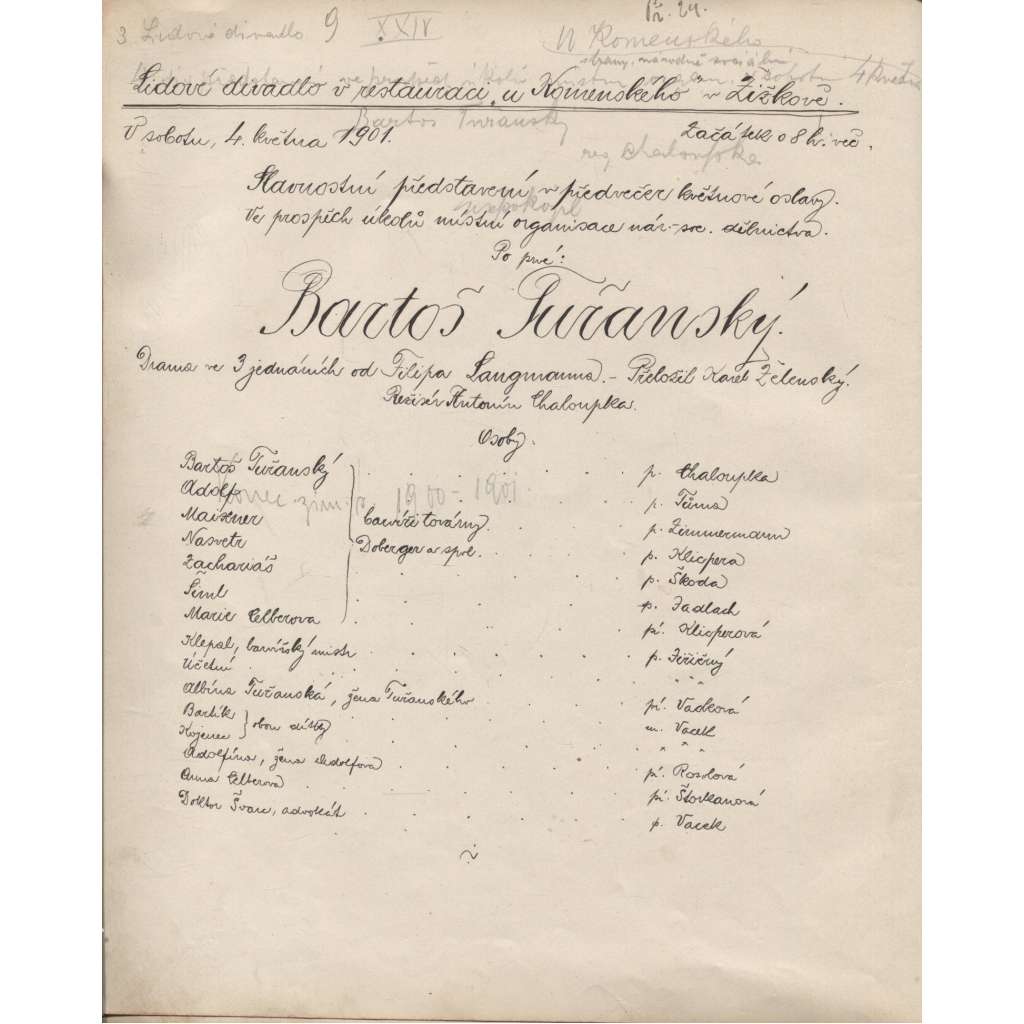 3. Lidové divadlo 9 XXIV
Př. 24.
U Komenského
strany národně sociální
4 května
Lidové divadlo v restauraci „u Komenského v Žižkově.
Bartoš Tuřanský
V sobotu, 4. května 1901. Začátek o 8 h. več.
rež Chaloupka
Slavnostní představení v předvečer květnové oslavy.
Ve prospěch úkolů místní organisace nár.-soc. dělnictva.
Po prvé:
Bartoš Tuřanský.
Drama ve 3 jednáních od Filipa Langmanna. – Přeložil Karel Želenský.
Režisér Antonín Chaloupka.
Osoby.
Bartoš Tuřanský p. Chaloupka
Adolf p. Tůma
Konec zim. 1900-1901
Maixner barvíři továrny p. Zimmermann
Nasvetr Doberger a spol. p. Klicpera
Zachariáš p. Škoda
Šeml p. Jadlach
Marie Elberova pí. Klicperová
Klepal, barvířský mistr p. Jeřičný
Účetní " " "
Albína Tuřanská, žena Tuřanského pí. Vaďková
Bartík } obou dítky m. Vacek
Kojenec " " "
Adolfína, žena Adolfova pí. Rosolová
Anna Elberova pí. Štorkanová
Doktor Švarc, advokát p. Vacek